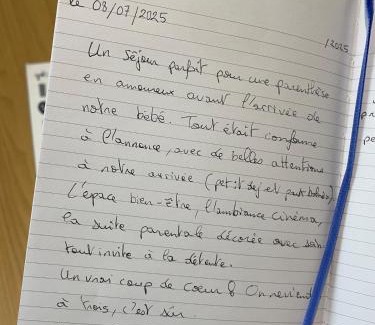 le 08/07/2025
/2025
Un séjour parfait pour une parenthèse
en amoureux avant l'arrivée de
notre bébé. Tout était conforme
à l'annonce, avec de belles attentions
à notre arrivée (petit dej et
L'épace bien-être, l'ambiance cinéma,
la suite parentale décorée avec soin
tout invite à la détente.
Un vrai coup de coeur & On revient
à trois, c'est sûr.